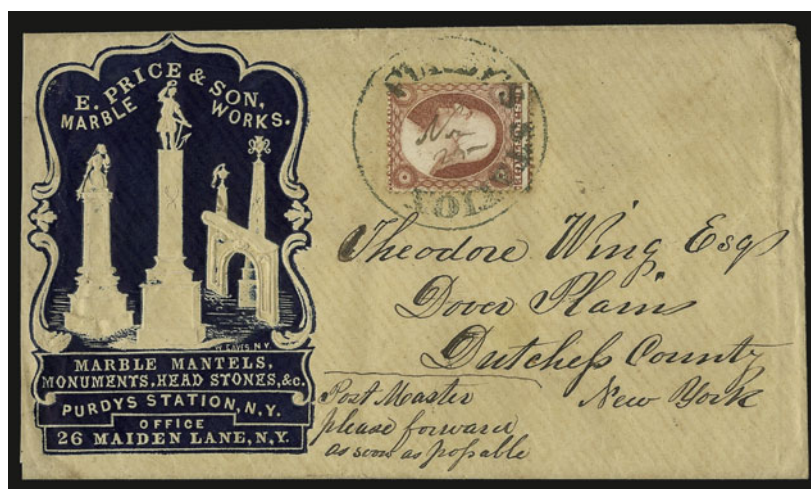 E. PRICE & SON,
MARBLE WORKS.
W. EAVES, N.Y.
MARBLE MANTELS,
MONUMENTS, HEAD STONES, &c.
PURDYS STATION, N.Y.
OFFICE
26 MAIDEN LANE, N.Y.
Theodore Wing Esqr
Dover Plains
Dutchess County
New York
Post Master
please forward
as soon as possable